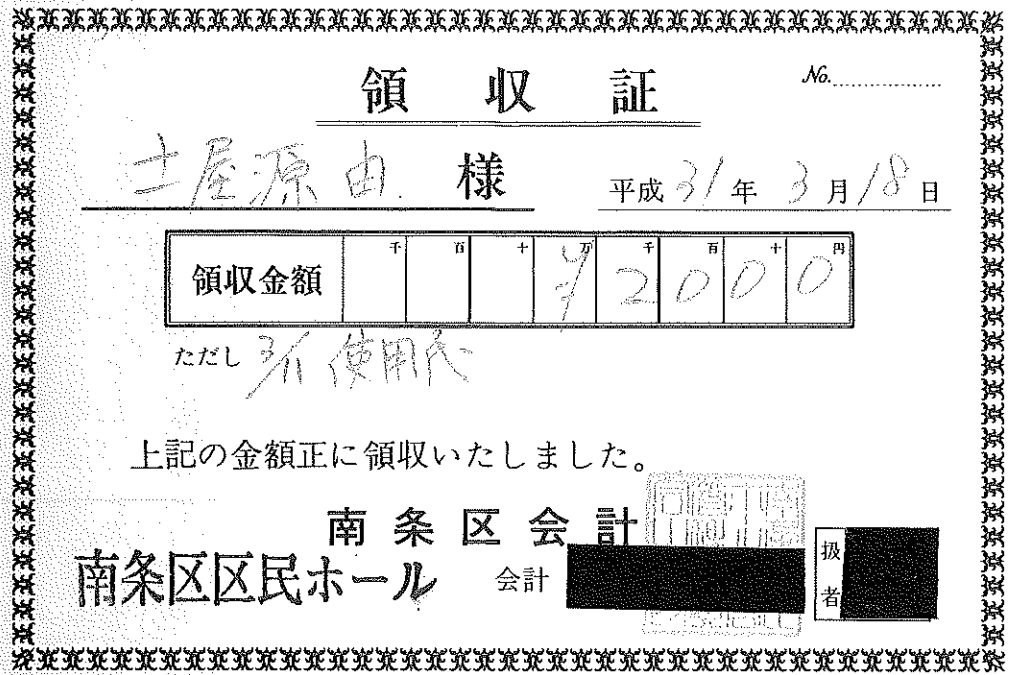 領収証
No.
土屋源由 様
平成31年3月18日
千 百 十 万 千 百 十 円
領収金額 ¥2000
ただし 3/1 使用代
上記の金額正に領収いたしました。
南条区会計
南条区区民ホール 会計
扱者